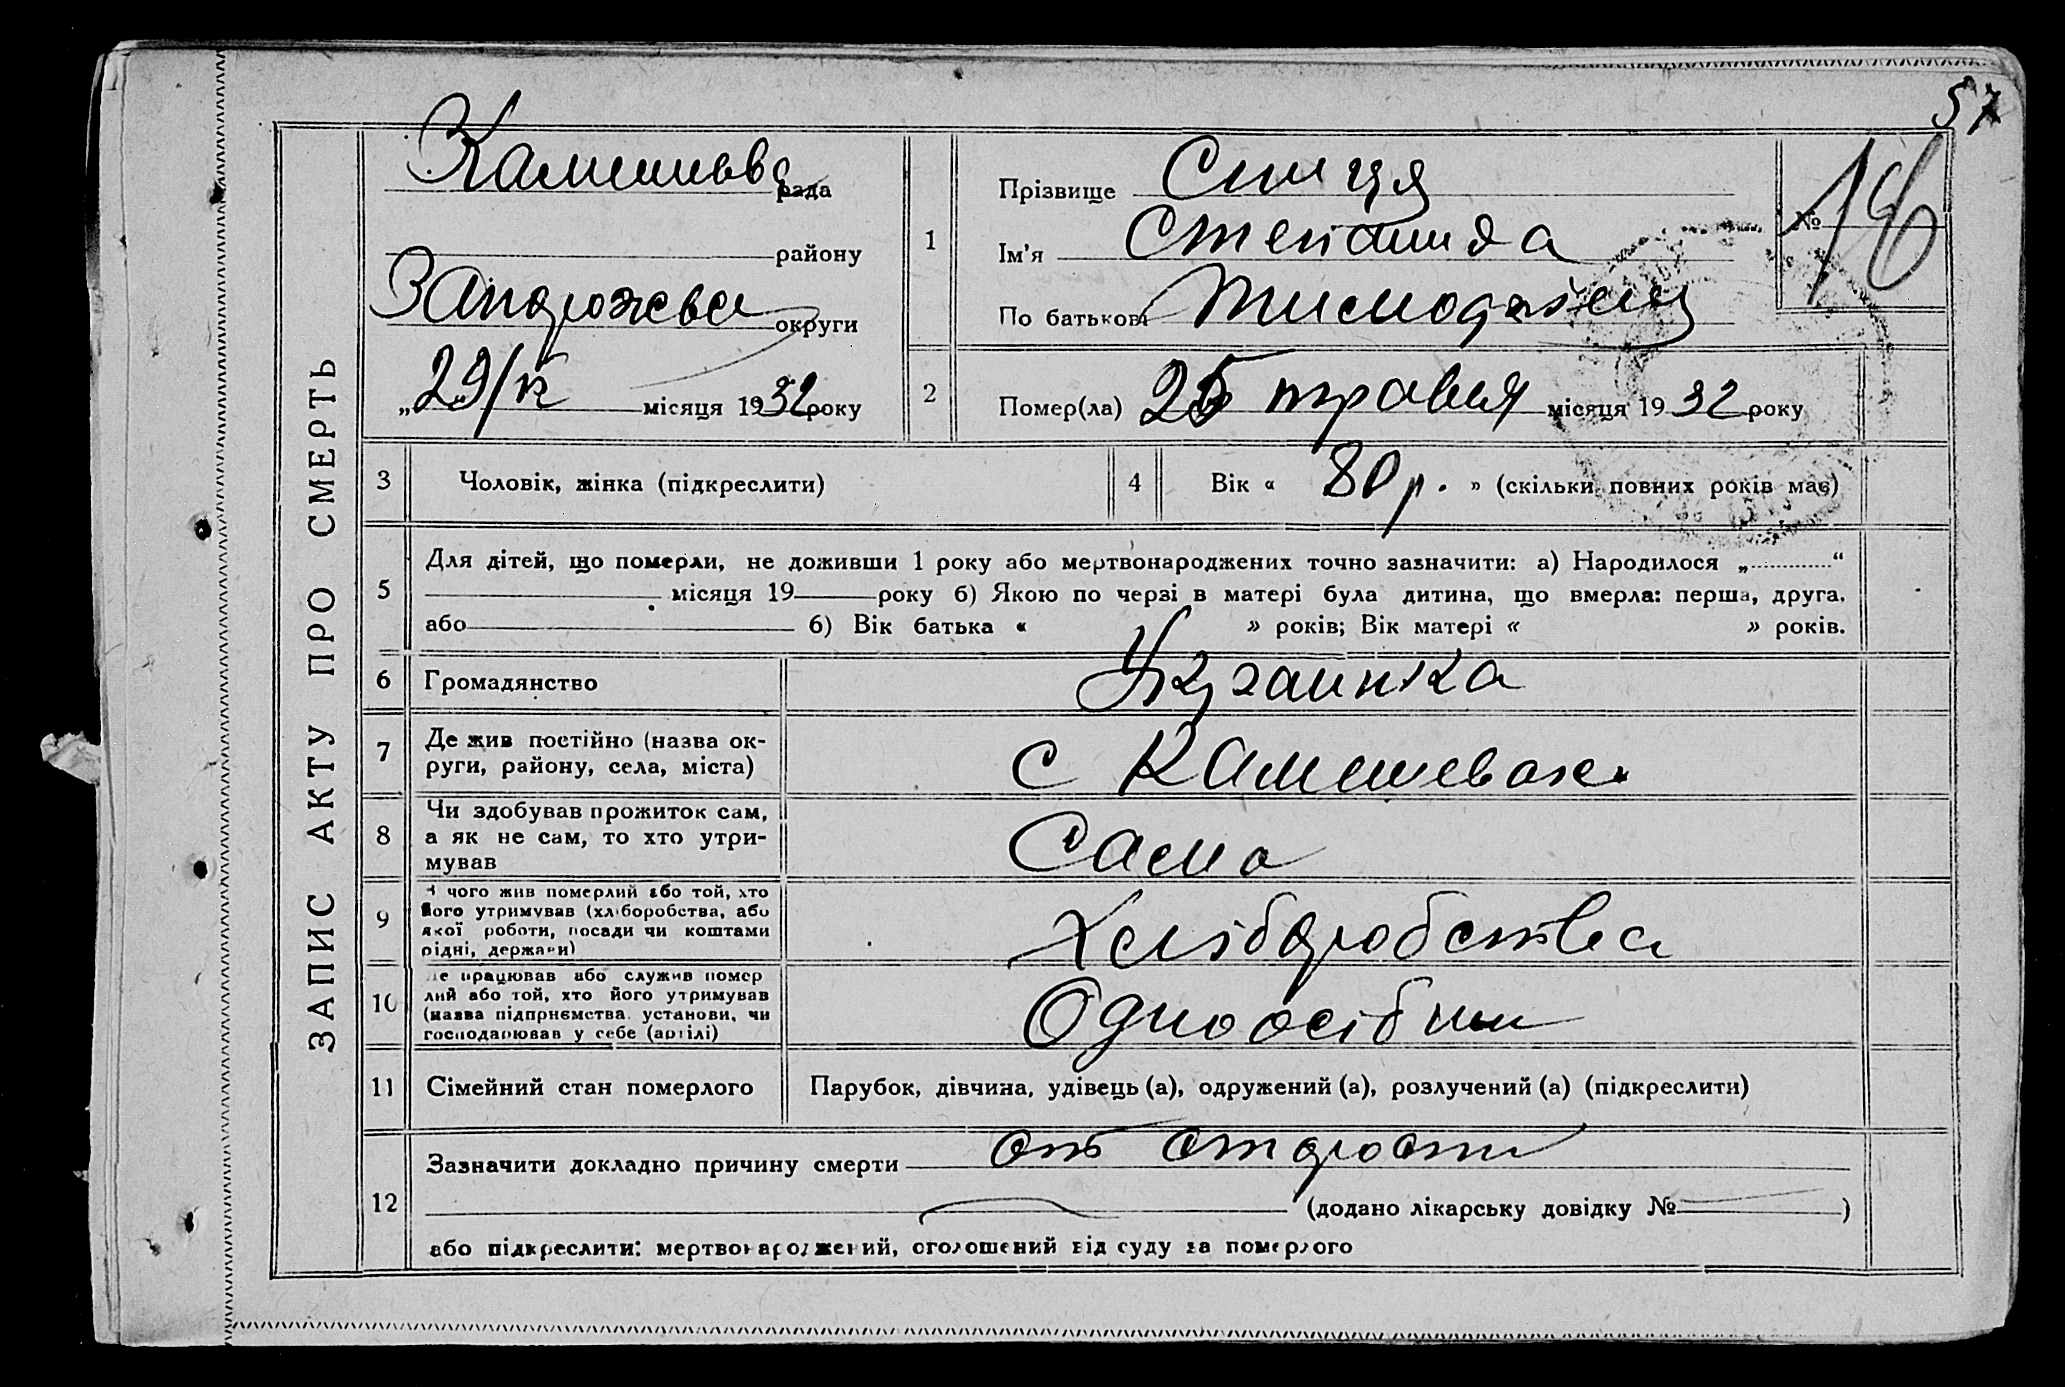 57
ЗАПИС АКТУ ПРО СМЕРТЬ
Камишьва рада
району
Запорожська округи
„29/V місяця 1932 року
1
Прізвище Спиця
Ім'я Степанида
По батькові Тимофіївна
№ 16
2
Помер(ла) 25 травня місяця 1932 року
3 Чоловік, жінка (підкреслити)
4 Вік « 80 р. » (скільки повних років має)
5 Для дітей, що померли, не доживши 1 року або мертвонароджених точно зазначити: а) Народилося „ “
місяця 19 року б) Якою по черзі в матері була дитина, що вмерла: перша, друга,
або б) Вік батька « » років; Вік матері « » років.
6 Громадянство Украинка
7 Де жив постійно (назва ок-
руги, району, села, міста) с Камишеваха
8 Чи здобував прожиток сам,
а як не сам, то хто утри-
мував Сама
9 З чого жив померлий або той, хто
його утримував (хліборобства, або
якої роботи, посади чи коштами
рідні, держави) Хліборобства
10 Де працював або служив помер
лий або той, хто його утримував
(назва підприємства, установи, чи
господарював у себе (артілі) Одноосібни
11 Сімейний стан померлого Парубок, дівчина, удівець (а), одружений (а), розлучений (а) (підкреслити)
12 Зазначити докладно причину смерти от старости
(додано лікарську довідку № )
або підкреслити: мертвонароджений, оголошений від суду за померлого